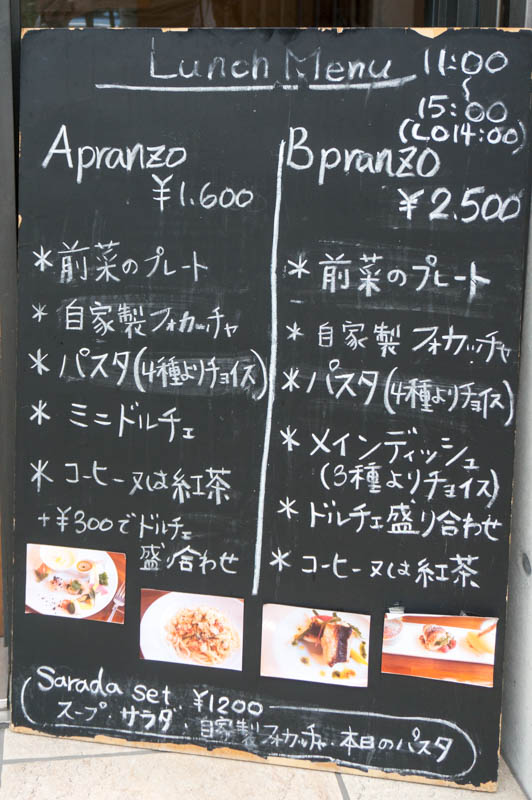 Lunch Menu 11:00
〜
15:00
(LO14:00)
A pranzo
¥1.600
＊前菜のプレート
＊自家製フォカッチャ
＊パスタ(4種よりチョイス)
＊ミニドルチェ
＊コーヒー又は紅茶
+¥300でドルチェ
盛り合わせ
B pranzo
¥2.500
＊前菜のプレート
＊自家製フォカッチャ
＊パスタ(4種よりチョイス)
＊メインディッシュ
(3種よりチョイス)
＊ドルチェ盛り合わせ
＊コーヒー又は紅茶
Sarada set ¥1200
スープ・サラダ・自家製フォカッチャ・本日のパスタ